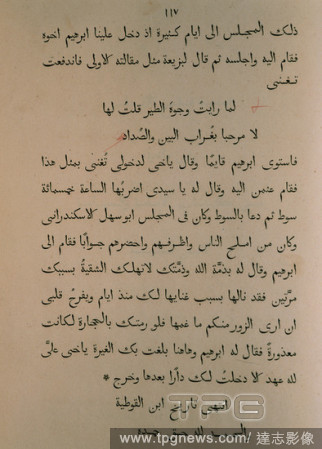 ١١٧
ذلك المجلس الى ايام كثيرة اذ دخل علينا ابرهيم اخوه
فقام اليه واجلسه ثم قال لبزيعة مثل مقالته الاولى فاندفعت
تغنى
لما رايت وجوة الطير قلت لها
لا مرحبا بغراب البين والصداد
فاستوى ابرهيم قايما وقال ياخى لدخولى تغنى بمثل هذا
فقام عثمن اليه وقال له يا سيدى اضربها الساعة خمسمائة
سوط ثم دعا بالسوط وكان فى المجلس ابو سهل الاسكندرانى
وكان من املح الناس واظرفهم واحضرهم جوابا فقام الى
ابرهيم وقال له بذمة الله وذمتك لا تهلك الشقية بسببك
مرتين فقد نالها بسبب غنايها لك منذ ايام ويفرح قلبى
ان ارى الزور منكم ما غمها فلو رمتك بالحجارة لكانت
معذورة فقال له ابرهيم وهاهنا بلغت بك الغيرة ياخى على
لله عهد لا دخلت لك دارا بعدها وخرج *
انتهى تاريخ ابن القوطية
TPG
www.tpgnews.com / 達志影像